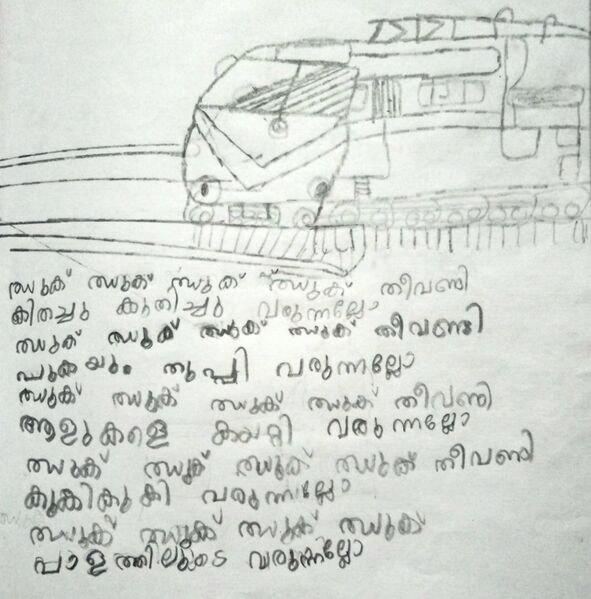 ഝുക് ഝുക് ഝുക് ഝുക് തീവണ്ടി
കിതച്ചു കുതിച്ചു വരുന്നല്ലോ
ഝുക് ഝുക് ഝുക് ഝുക് തീവണ്ടി
പുകയും തുപ്പി വരുന്നല്ലോ
ഝുക് ഝുക് ഝുക് ഝുക് തീവണ്ടി
ആളുകളെ കയറ്റി വരുന്നല്ലോ
ഝുക് ഝുക് ഝുക് ഝുക് തീവണ്ടി
കൂകികൂകി വരുന്നല്ലോ
ഝുക് ഝുക് ഝുക് ഝുക്
പാളത്തിലൂടെ വരുന്നല്ലോ